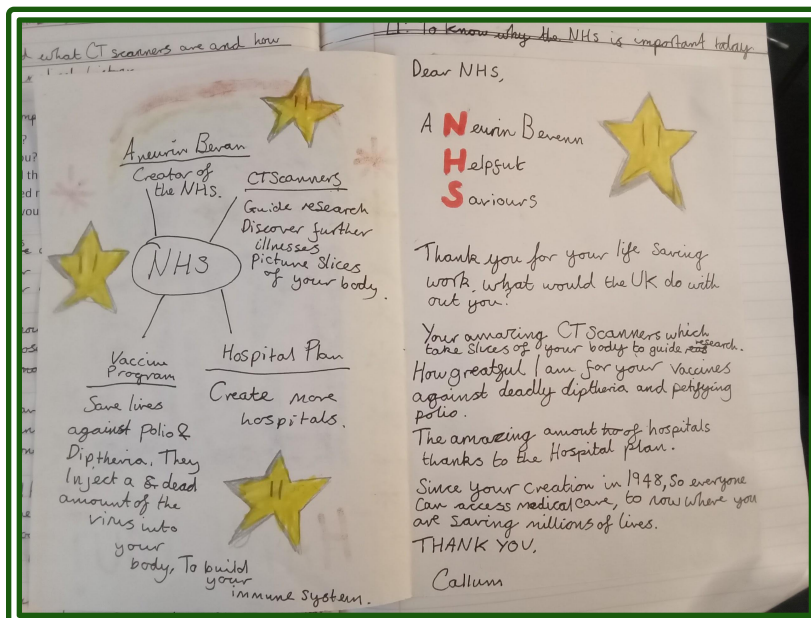 d what CT scanners are and how
LI: To know why the NHS is important today.
Aneurin Bevan
Creator of
the NHS.
CT Scanners
Guide research
Discover further
illnesses
Picture slices
of your body.
NHS
Vaccine
Program
Save lives
against polio &
Diptheria. They
Inject a & dead
amount of the
virus into
your
body, To build
your
immune system.
Hospital Plan
Create more
hospitals.
Dear NHS,
A Neurin Bevenn
Helpfut
Saviours
Thank you for your life saving
work. What would the UK do with
out you?
Your amazing CT Scanners which
take slices of your body to guide research.
How greatful I am for your vaccines
against deadly diptheria and petifying
polio.
The amazing amout no of hospitals
thanks to the Hospital plan.
Since your creation in 1948, so everyone
can access medical care, to now where you
are saving millions of lives.
THANK YOU,
Callum